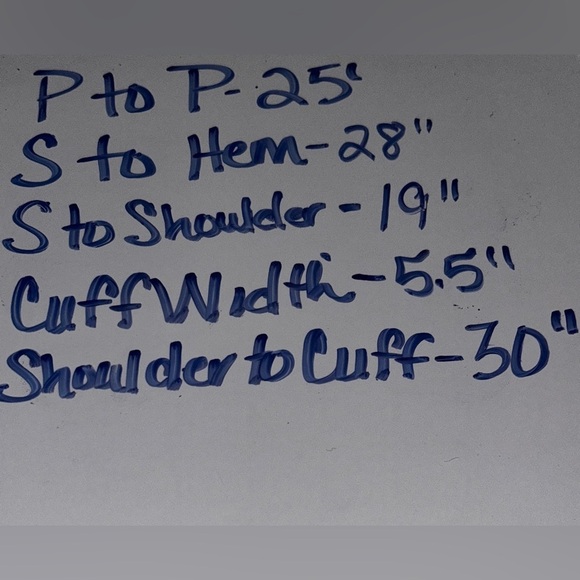 P to P-25'
S to Hem-28"
S to Shoulder-19"
Cuff Width-5.5"
Shoulder to Cuff-30"